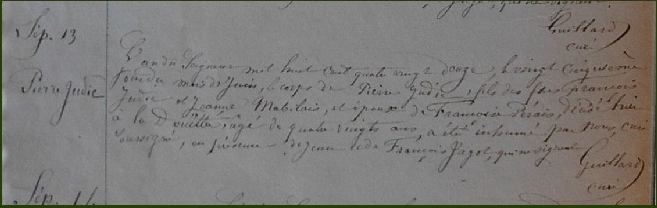 Guillard
curé
Sép. 13
Pierre Judic
L'an du Seigneur mil huit cent quatre vingt douze, le vingt cinquième
jour du mois de Juin, le corps de Pierre Judic, fils des feus François
Judic et Jeanne Mabilais, et époux de Françoise décédé hier
à la âgé de quatre vingts ans, a été inhumé par Nous, curé
soussigné, en présence de Jean et de François Jagot, qui ne signent
Guillard
curé
Sép. 14